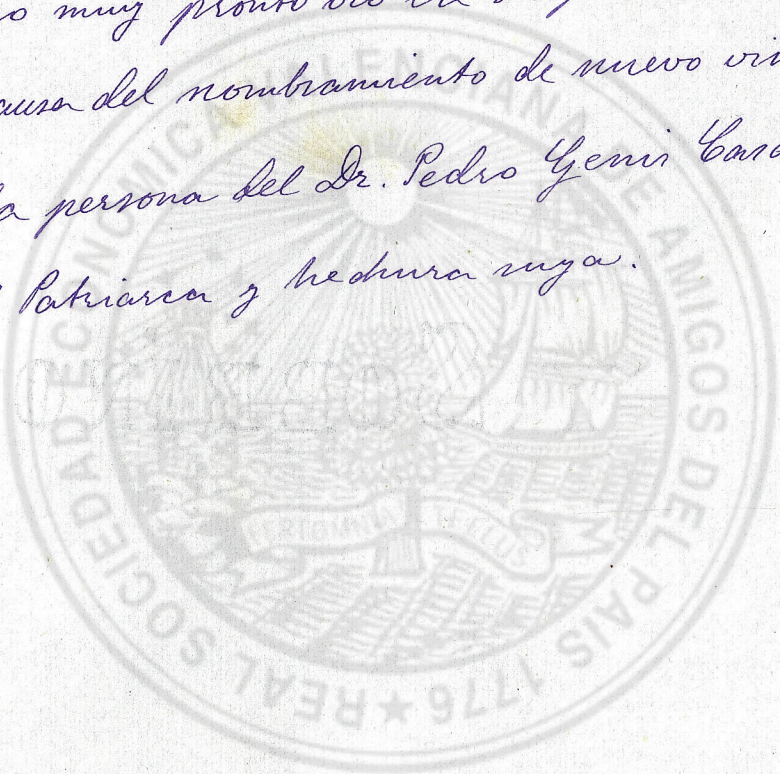 o muy pronto
ausa del nombramiento de nuevo vi
la persona del Dr. Pedro Genis Casa
Patriarca y hechura suya.
REAL SOCIEDAD ECONOMICA VALENCIANA DE AMIGOS DEL PAIS 1776 ★